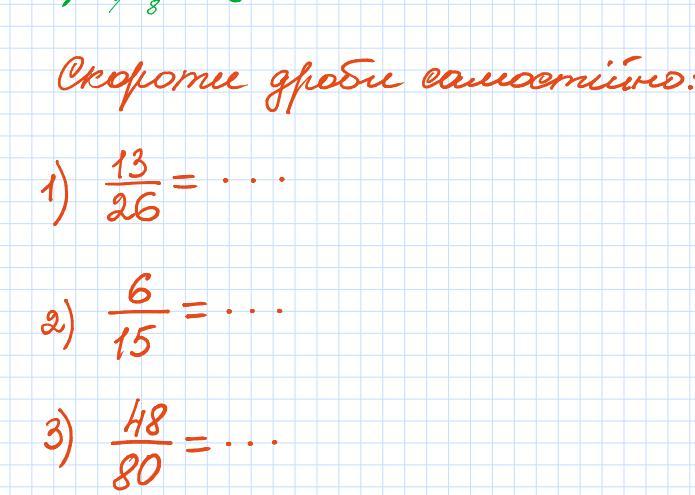 Скороти дроби самостійно:
1) 13/26 = ...
2) 6/15 = ...
3) 48/80 = ...